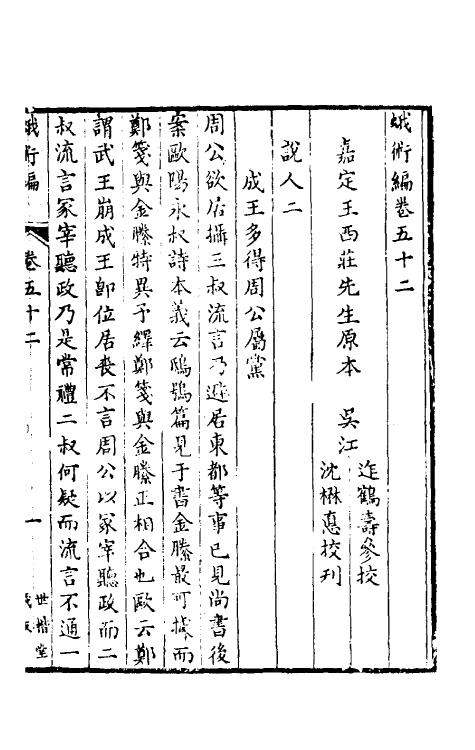 蛾術編卷五十二
嘉定王西莊先生原本
吳江
迮鶴壽參挍
沈楙悳挍刊
說人二
成王多得周公屬黨
周公欲居攝三叔流言乃避居東都等事已見尚書後
案歐陽永叔詩本義云鴟鴞篇見于書金縢最可據而
鄭箋與金縢特異予繹鄭箋與金縢正相合也歐云鄭
謂武王崩成王卽位居喪不言周公以冢宰聽政而二
叔流言冢宰聽政乃是常禮二叔何疑而流言不通一
蛾術編
卷五十二
一
世楷堂